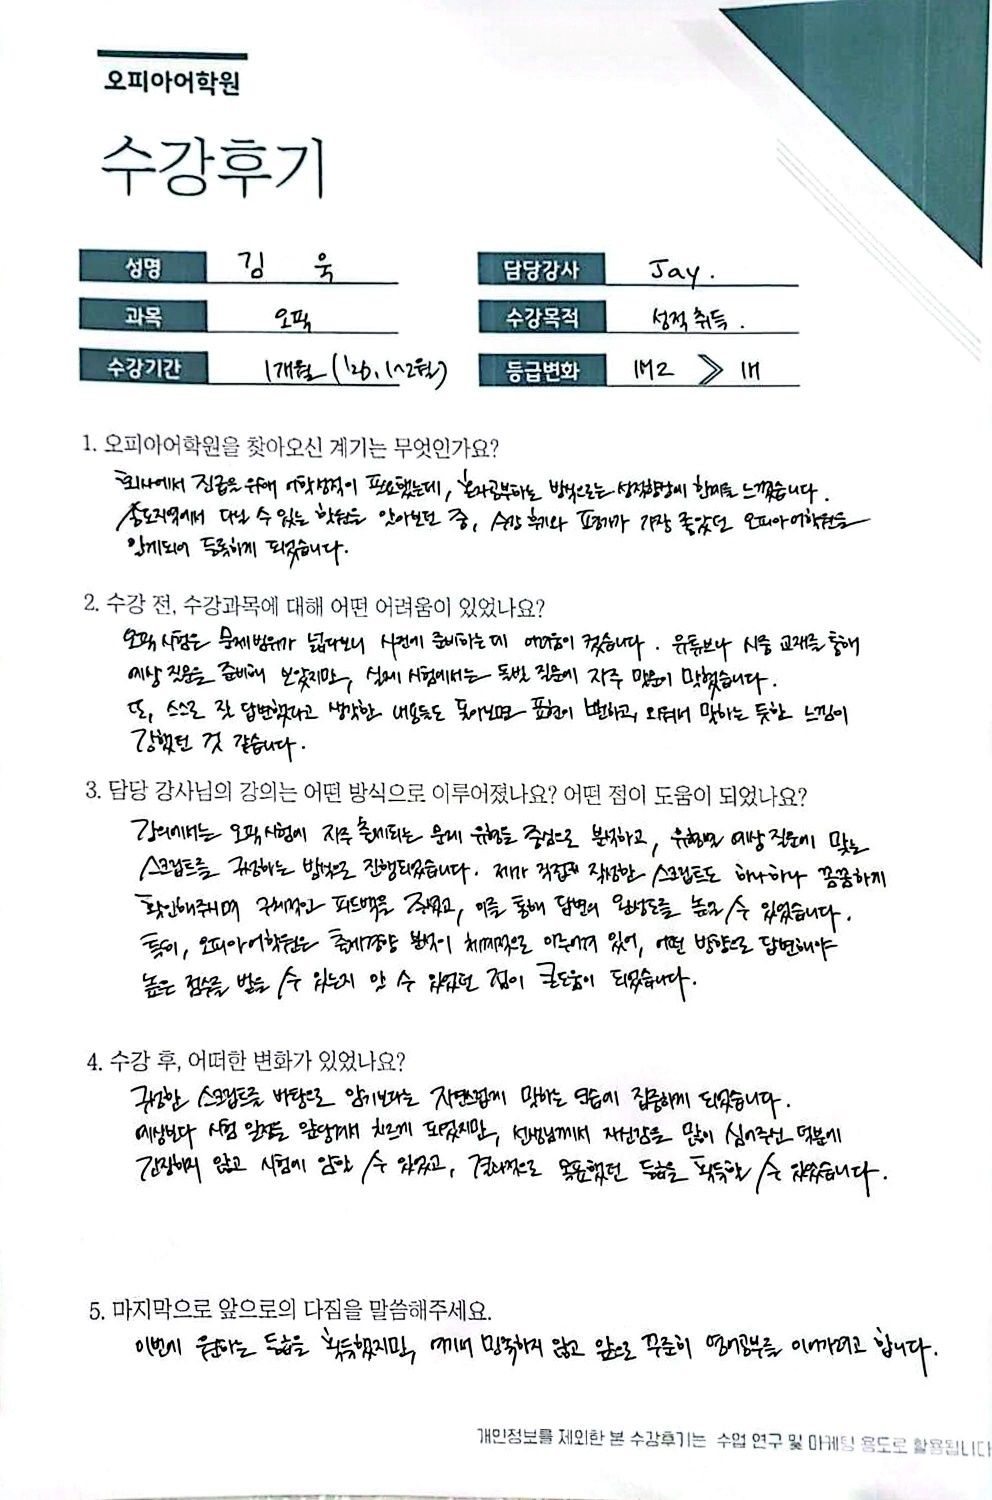 오피아어학원
수강후기
성명 김 욱 담당강사 Jay.
과목 오픽 수강목적 성적 취득.
수강기간 1개월 ('26. 1~2월) 등급변화 IM2 > IH
1. 오피아어학원을 찾아오신 계기는 무엇인가요?
회사에서 진급을 위해 어학성적이 필요했는데, 혼자공부하는 방식으로는 성적향상에 한계를 느꼈습니다.
송도지역에서 다닐 수 있는 학원을 알아보던 중, 수강 후기와 평가가 가장 좋았던 오피아어학원을
알게되어 등록하게 되었습니다.
2. 수강 전, 수강과목에 대해 어떤 어려움이 있었나요?
오픽 시험은 문제범위가 넓다보니 사전에 준비하는데 어려움이 컸습니다. 유튜브나 시중 교재를 통해
예상 질문을 준비해 보았지만, 실제 시험에서는 돌발 질문에 자주 말문이 막혔습니다.
또, 스스로 잘 답변했다고 생각한 내용들도 돌아보면 표현이 뻔하고, 외워서 말하는 듯한 느낌이
강했던 것 같습니다.
3. 담당 강사님의 강의는 어떤 방식으로 이루어졌나요? 어떤 점이 도움이 되었나요?
강의에서는 오픽시험에 자주 출제되는 문제 유형들 중심으로 분석하고, 유형별 예상 질문에 맞는
스크립트를 구성하는 방식으로 진행되었습니다. 제가 직접 작성한 스크립트도 하나하나 꼼꼼하게
확인해주시며 구체적인 피드백을 주셨고, 이를 통해 답변의 완성도를 높일 수 있었습니다.
특히, 오피아어학원은 출제경향 분석이 체계적으로 이루어져 있어, 어떤 방향으로 답변해야
높은 점수를 받을 수 있는지 알 수 있었던 점이 큰도움이 되었습니다.
4. 수강 후, 어떠한 변화가 있었나요?
구성한 스크립트를 바탕으로 암기보다는 자연스럽게 말하는 연습에 집중하게 되었습니다.
예상보다 시험 일정을 앞당겨서 치르게 되었지만, 선생님께서 자신감을 많이 심어주신 덕분에
긴장하지 않고 시험에 임할 수 있었고, 결과적으로 목표했던 등급을 획득할 수 있었습니다.
5. 마지막으로 앞으로의 다짐을 말씀해주세요.
이번에 원하는 등급을 획득했지만, 여기서 만족하지 않고 앞으로 꾸준히 영어공부를 이어가려고 합니다.
개인정보를 제외한 본 수강후기는 수업 연구 및 마케팅 용도로 활용됩니다